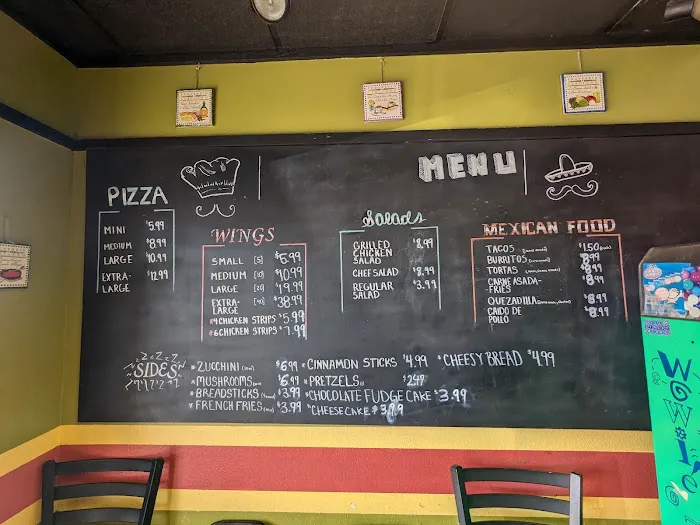 MENU
PIZZA
MINI $5.99
MEDIUM $8.99
LARGE $10.99
EXTRA-LARGE $12.99
WINGS
SMALL [5] $5.99
MEDIUM [10] $10.99
LARGE [20] $19.99
EXTRA-LARGE [40] $38.99
*4 CHICKEN STRIPS $5.99
*6 CHICKEN STRIPS $7.99
Salads
GRILLED CHICKEN SALAD $8.99
CHEF SALAD $8.99
REGULAR SALAD $3.99
MEXICAN FOOD
TACOS $1.50
BURRITOS $8.99
TORTAS $8.99
CARNE ASADA-FRIES $8.99
QUEZADILLA $8.99
CALDO DE POLLO $8.99
SIDES
*ZUCCHINI $6.99
*MUSHROOMS $6.99
*BREADSTICKS $3.99
*FRENCH FRIES $3.99
*CINNAMON STICKS $4.99
*PRETZELS $2.49
*CHOCOLATE FUDGE CAKE $3.99
*CHEESECAKE $3.99
*CHEESY BREAD $4.99
WOW